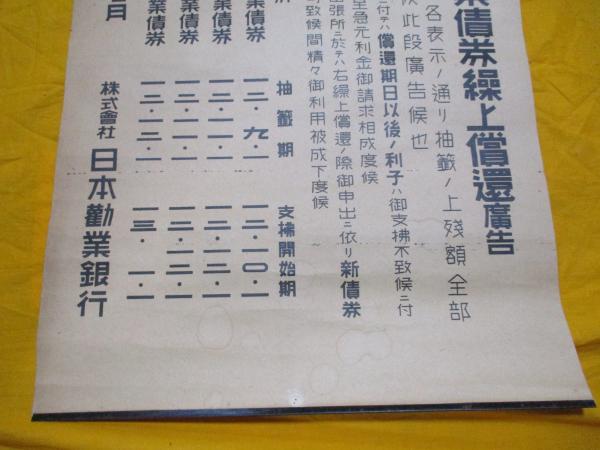 業債券繰上償還廣告
各表示ノ通リ抽籤ノ上殘額全部
此段廣告候也
付テハ償還期日以後ノ利子ハ御支拂不致候ニ付
至急元利金御請求相成度候
出張所ニ於テハ右繰上償還ノ際御申出ニ依リ新債券
致候間精々御利用被成下度候
抽籤期 支拂開始期
業債券 一二・九・一 一二・一〇・一
業債券 一二・一一・一 一二・一二・一
業債券 一二・一一・一 一二・一二・一
業債券 一二・一二・一 一三・一・一
月
株式會社 日本勸業銀行